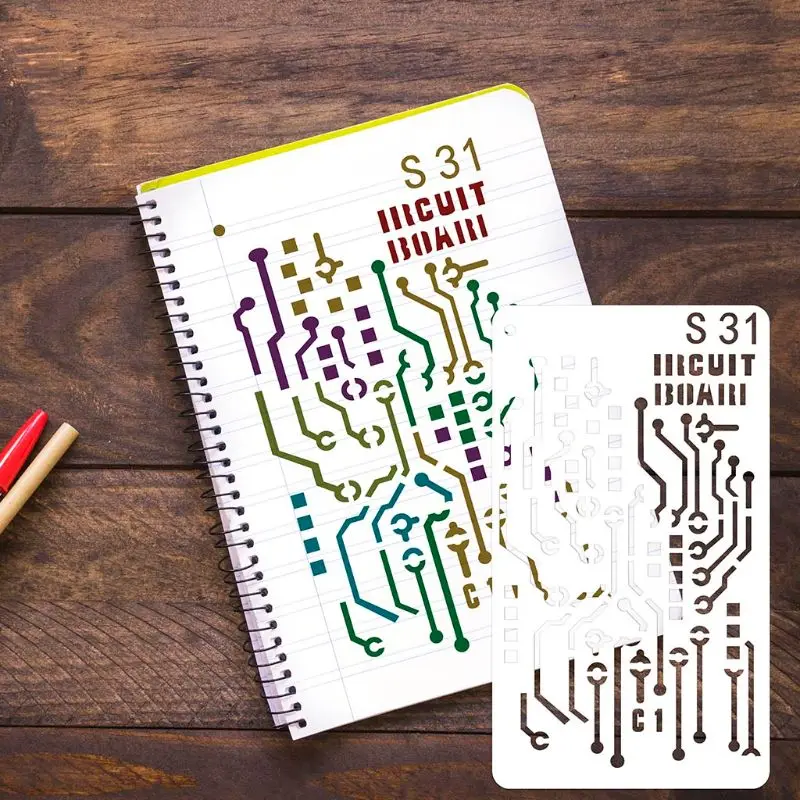 S 31
IRCUIT
BOARI
C1
S 31
IRCUIT
BOARI
C1